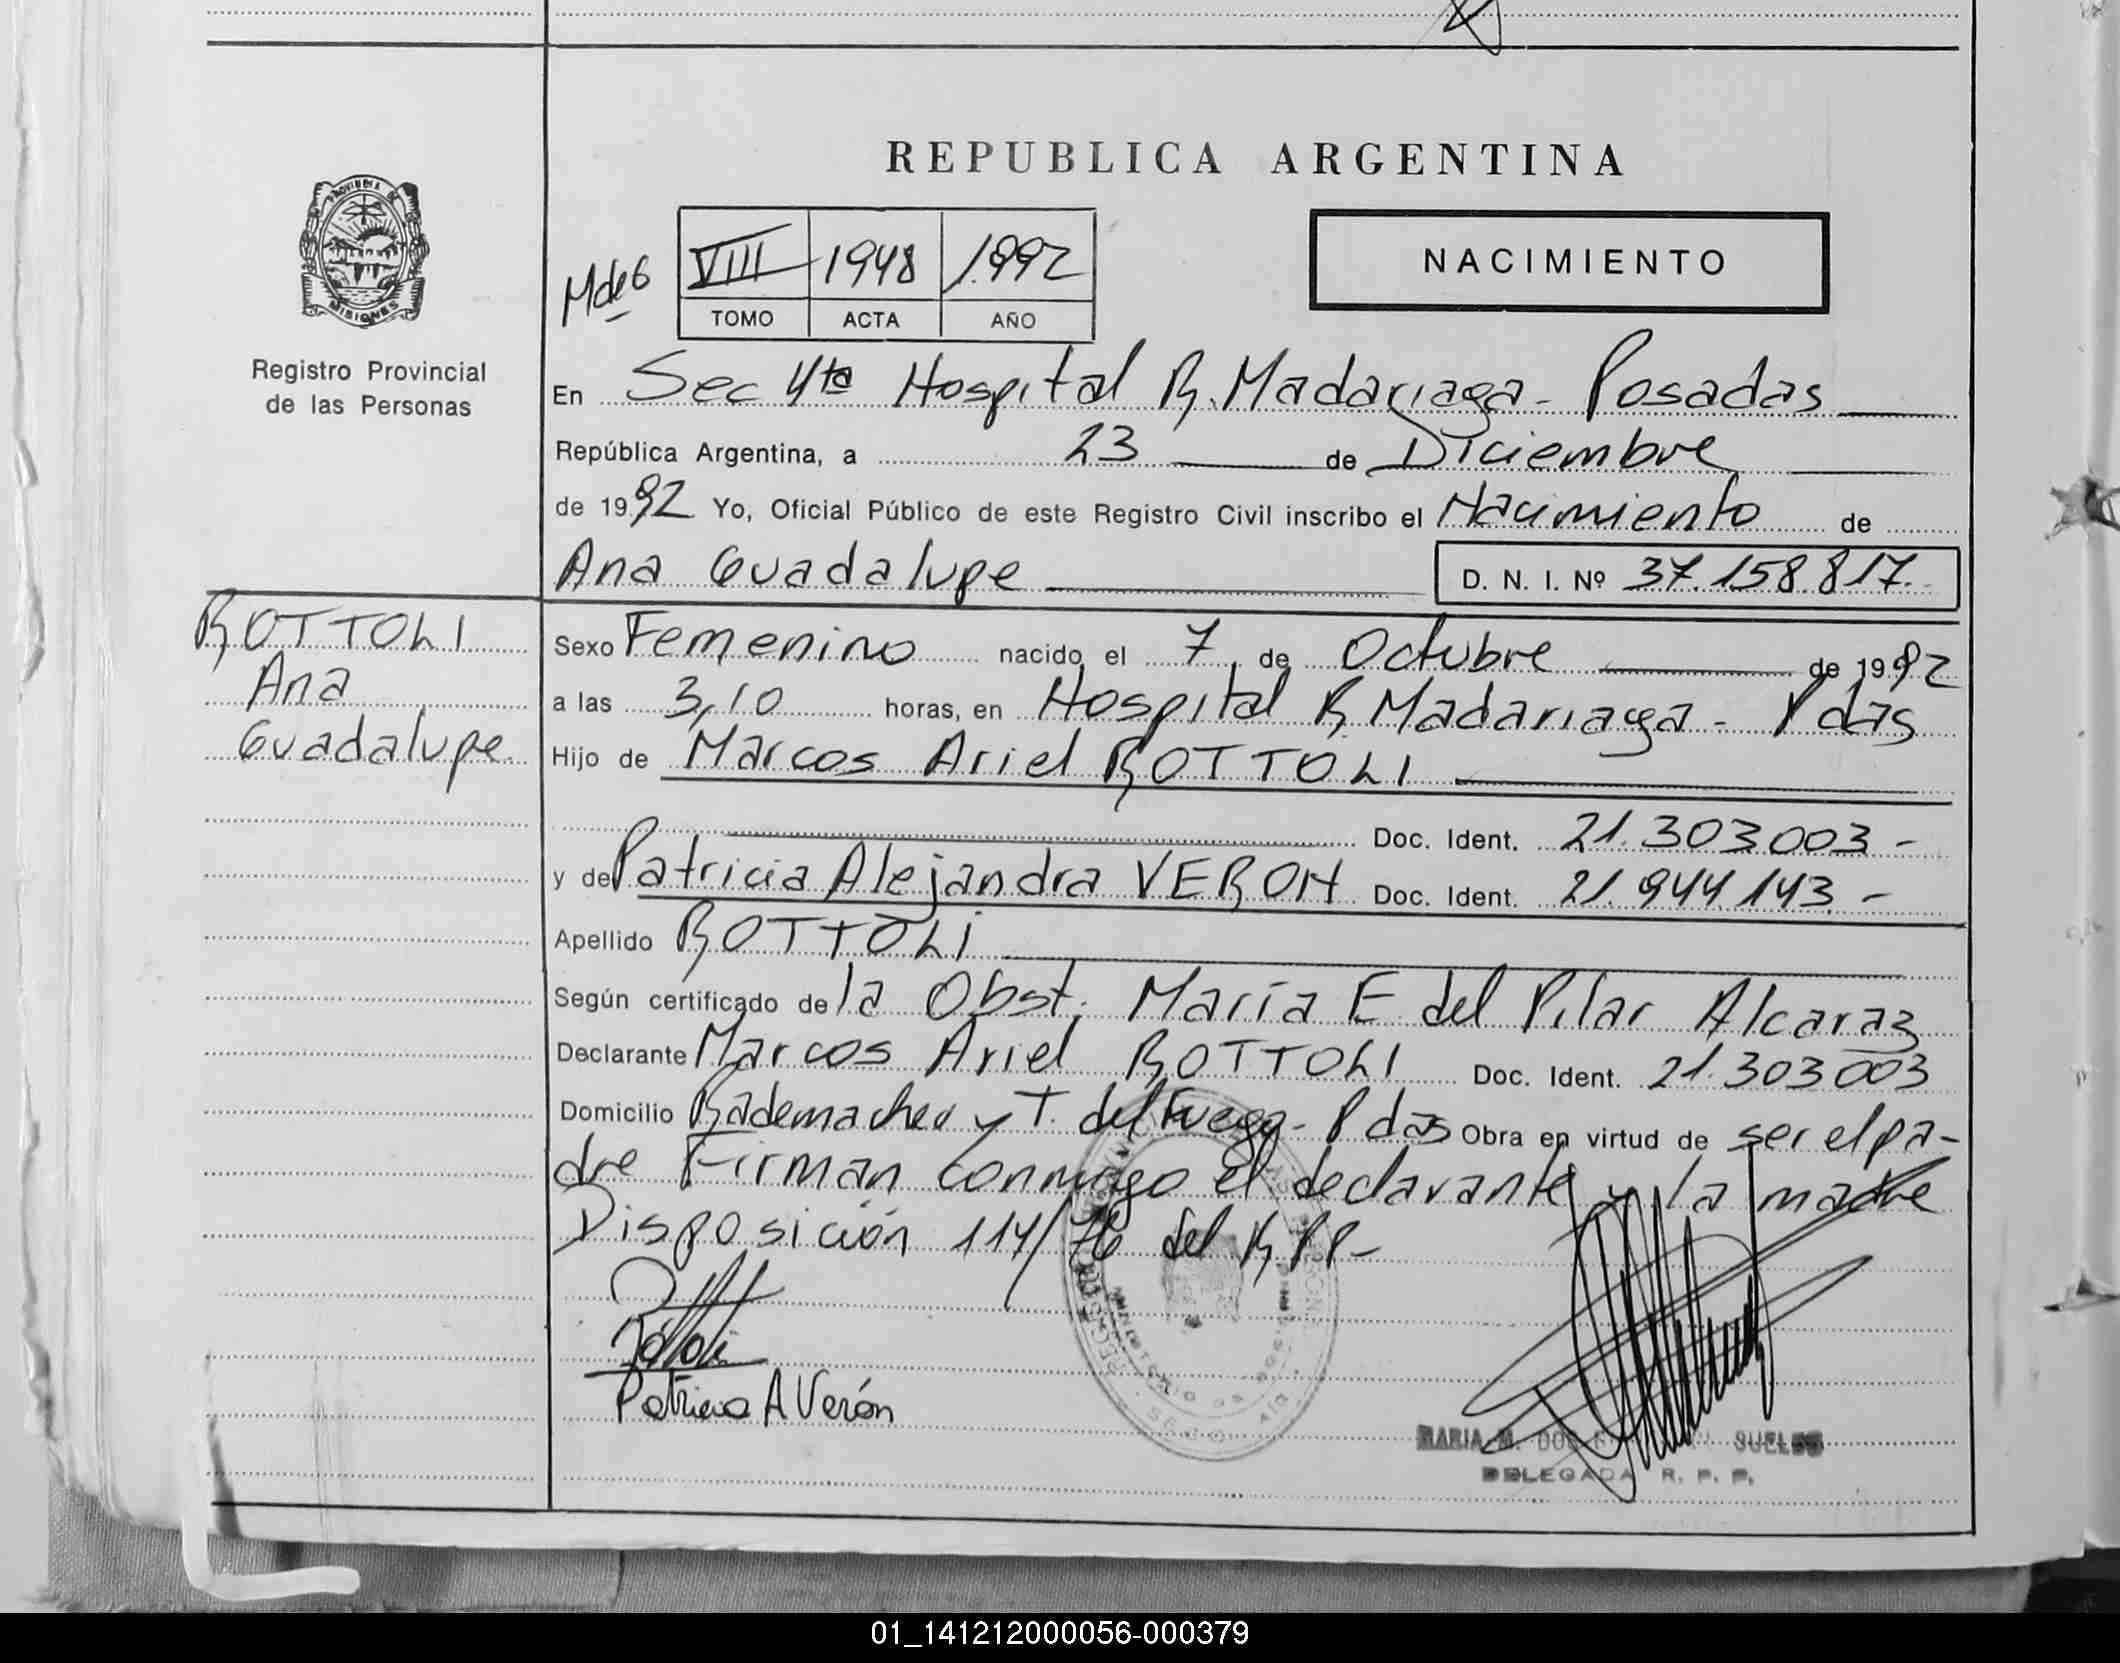 REPUBLICA ARGENTINA
PROVINCIA DE
MISIONES
Registro Provincial
de las Personas
VIII 1948 1992
TOMO ACTA AÑO
NACIMIENTO
En Sec 4ta Hospital R. Madariaga - Posadas
República Argentina, a 23 de Diciembre
de 1992 Yo, Oficial Público de este Registro Civil inscribo el Nacimiento de
Ana Guadalupe D. N. I. Nº 37.158.817.
ROTTOLI
Ana
Guadalupe
Sexo Femenino nacido el 7 de Octubre de 1992
a las 3,10 horas, en Hospital R Madariaga - Pdas
Hijo de Marcos Ariel ROTTOLI
Doc. Ident. 21.303.003-
y de Patricia Alejandra VERON Doc. Ident. 21.944.143.-
Apellido ROTTOLI
Según certificado de la Obst. María E del Pilar Alcaraz
Declarante Marcos Ariel ROTTOLI Doc. Ident. 21.303.003
Domicilio Rademacher y T. del Fuego - Pdas Obra en virtud de ser el pa-
dre Firman conmigo el declarante y la madre
Disposición 114/76 del R P P-
Patricia A Verón
MARIA M. SUELDO
DELEGADA R. P. P.
01_141212000056-000379